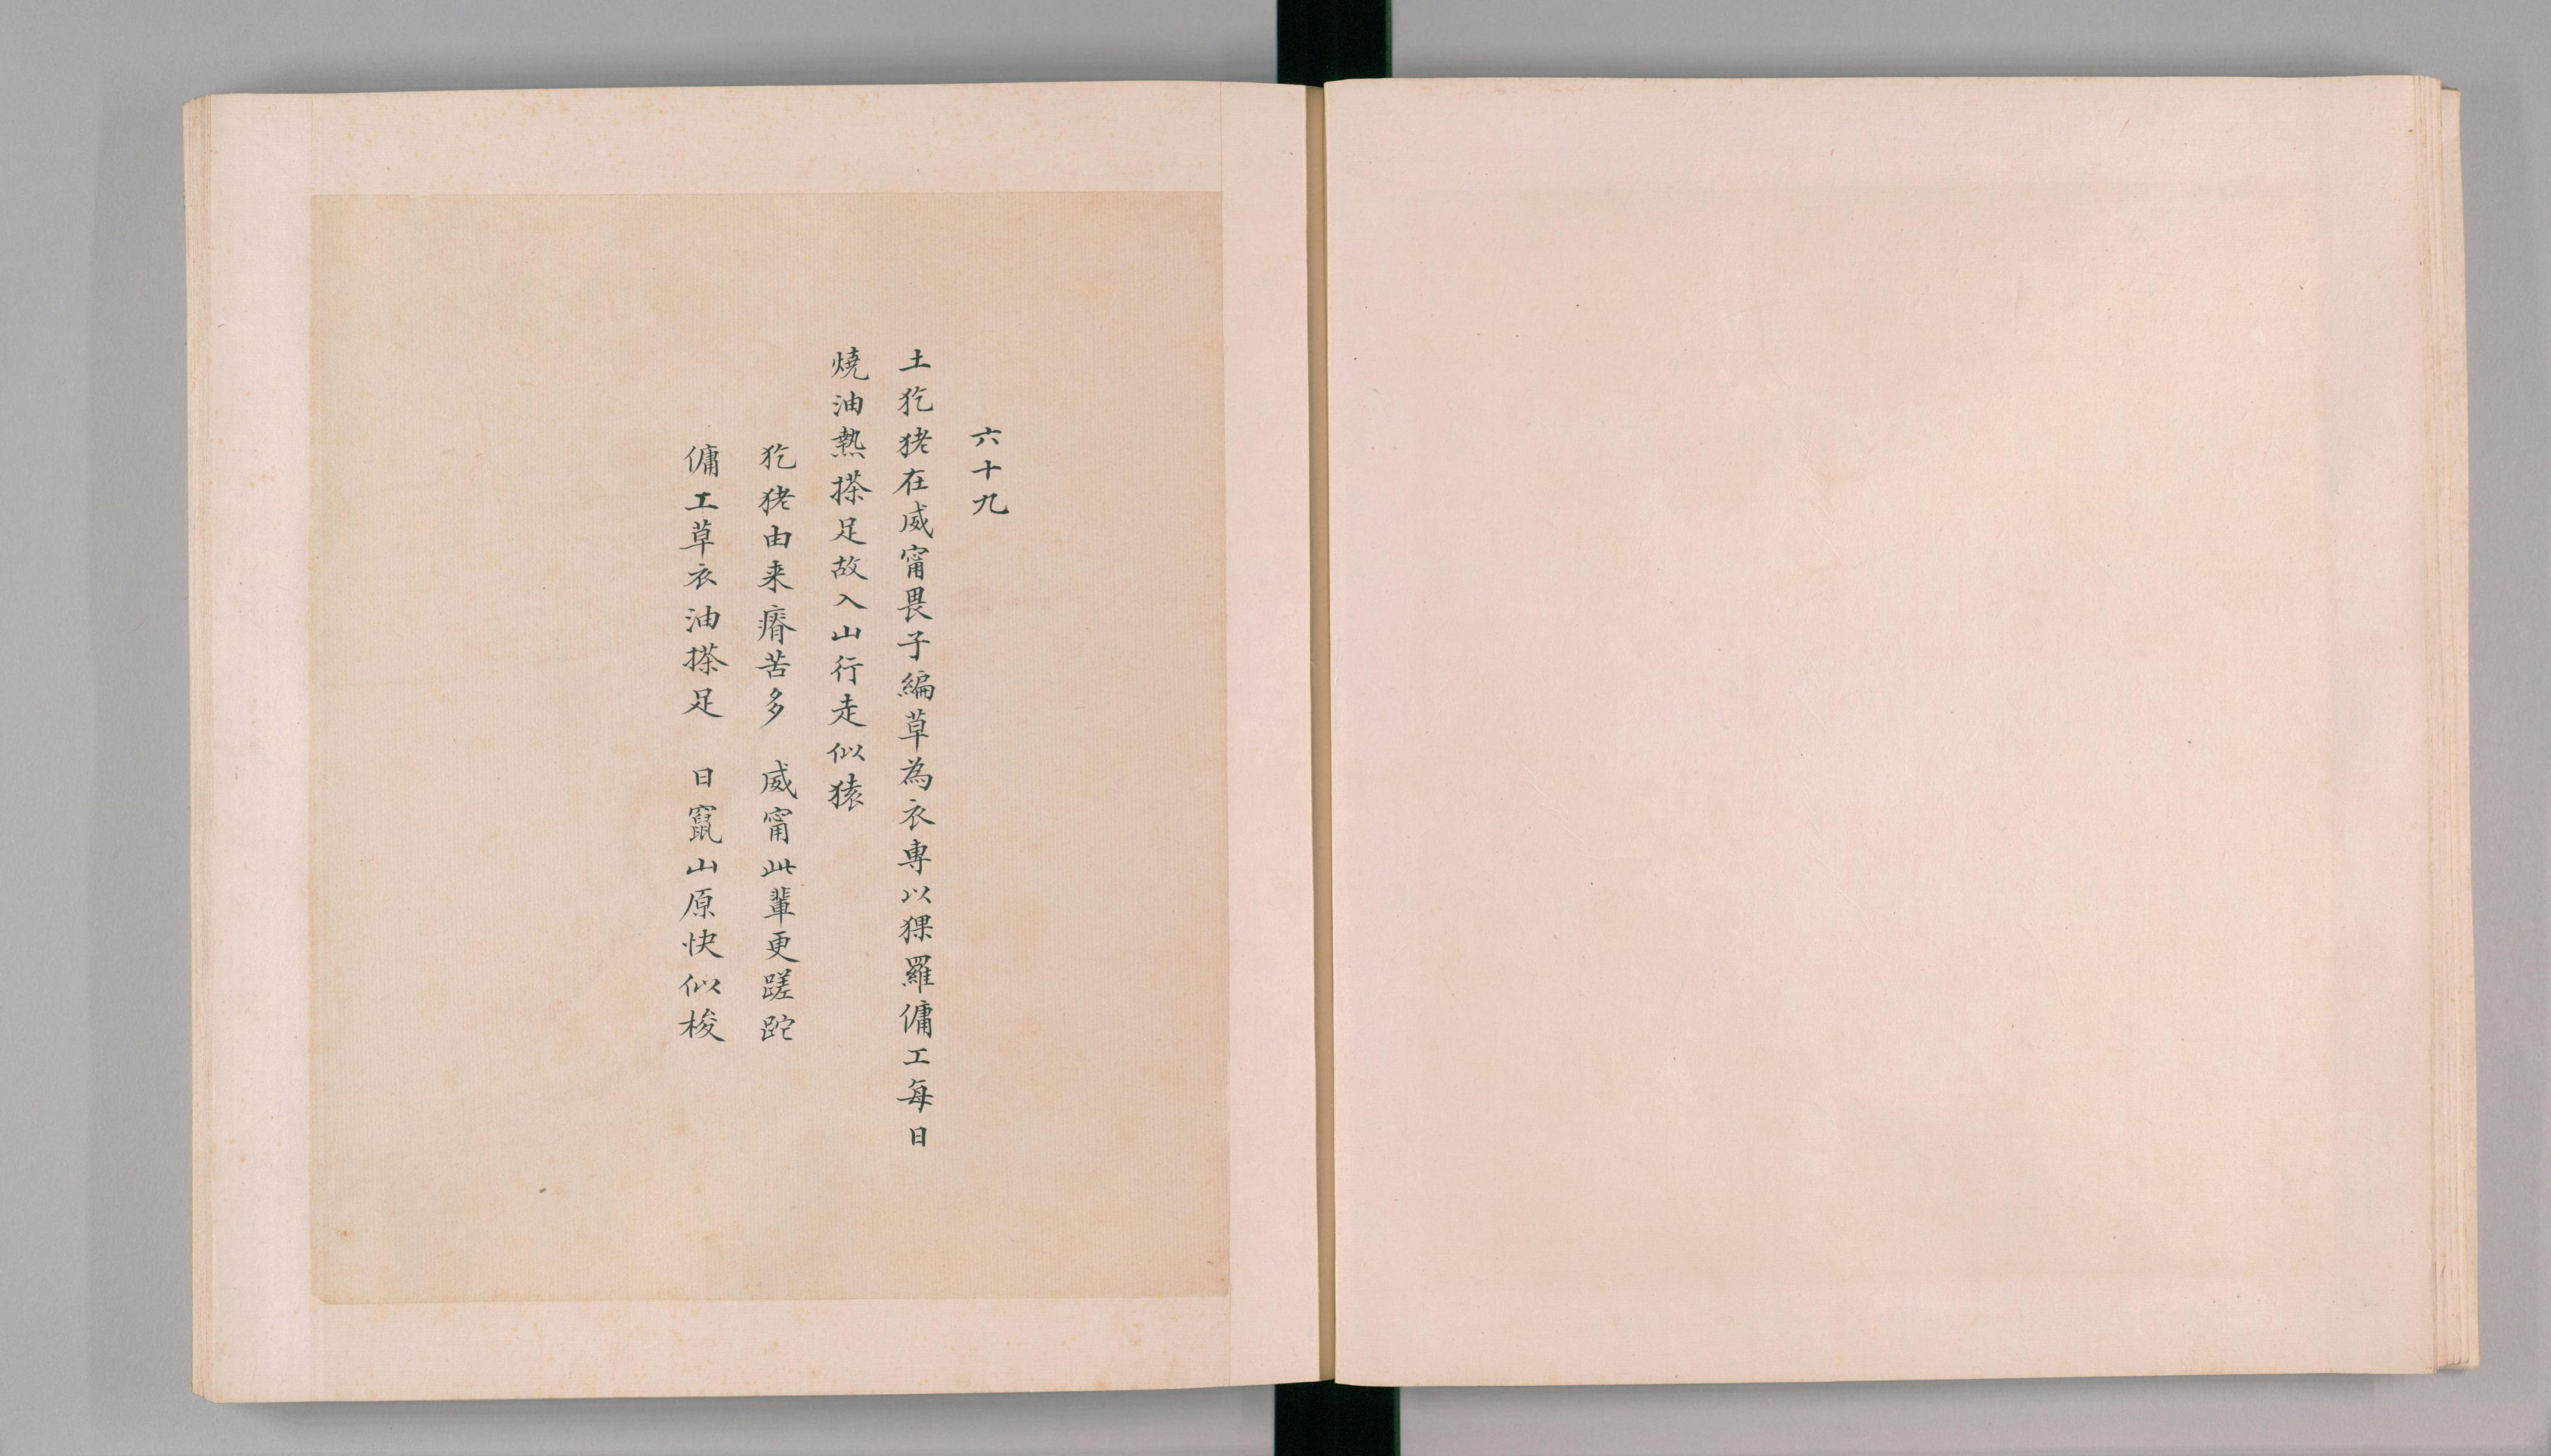 六十九
土犵狫在威甯畏子編草為衣專以猓羅傭工每日
燒油熱搽足故入山行走似猿
犵狫由来瘠苦多　威甯此輩更蹉跎
傭工草衣油搽足　日竄山原快似梭